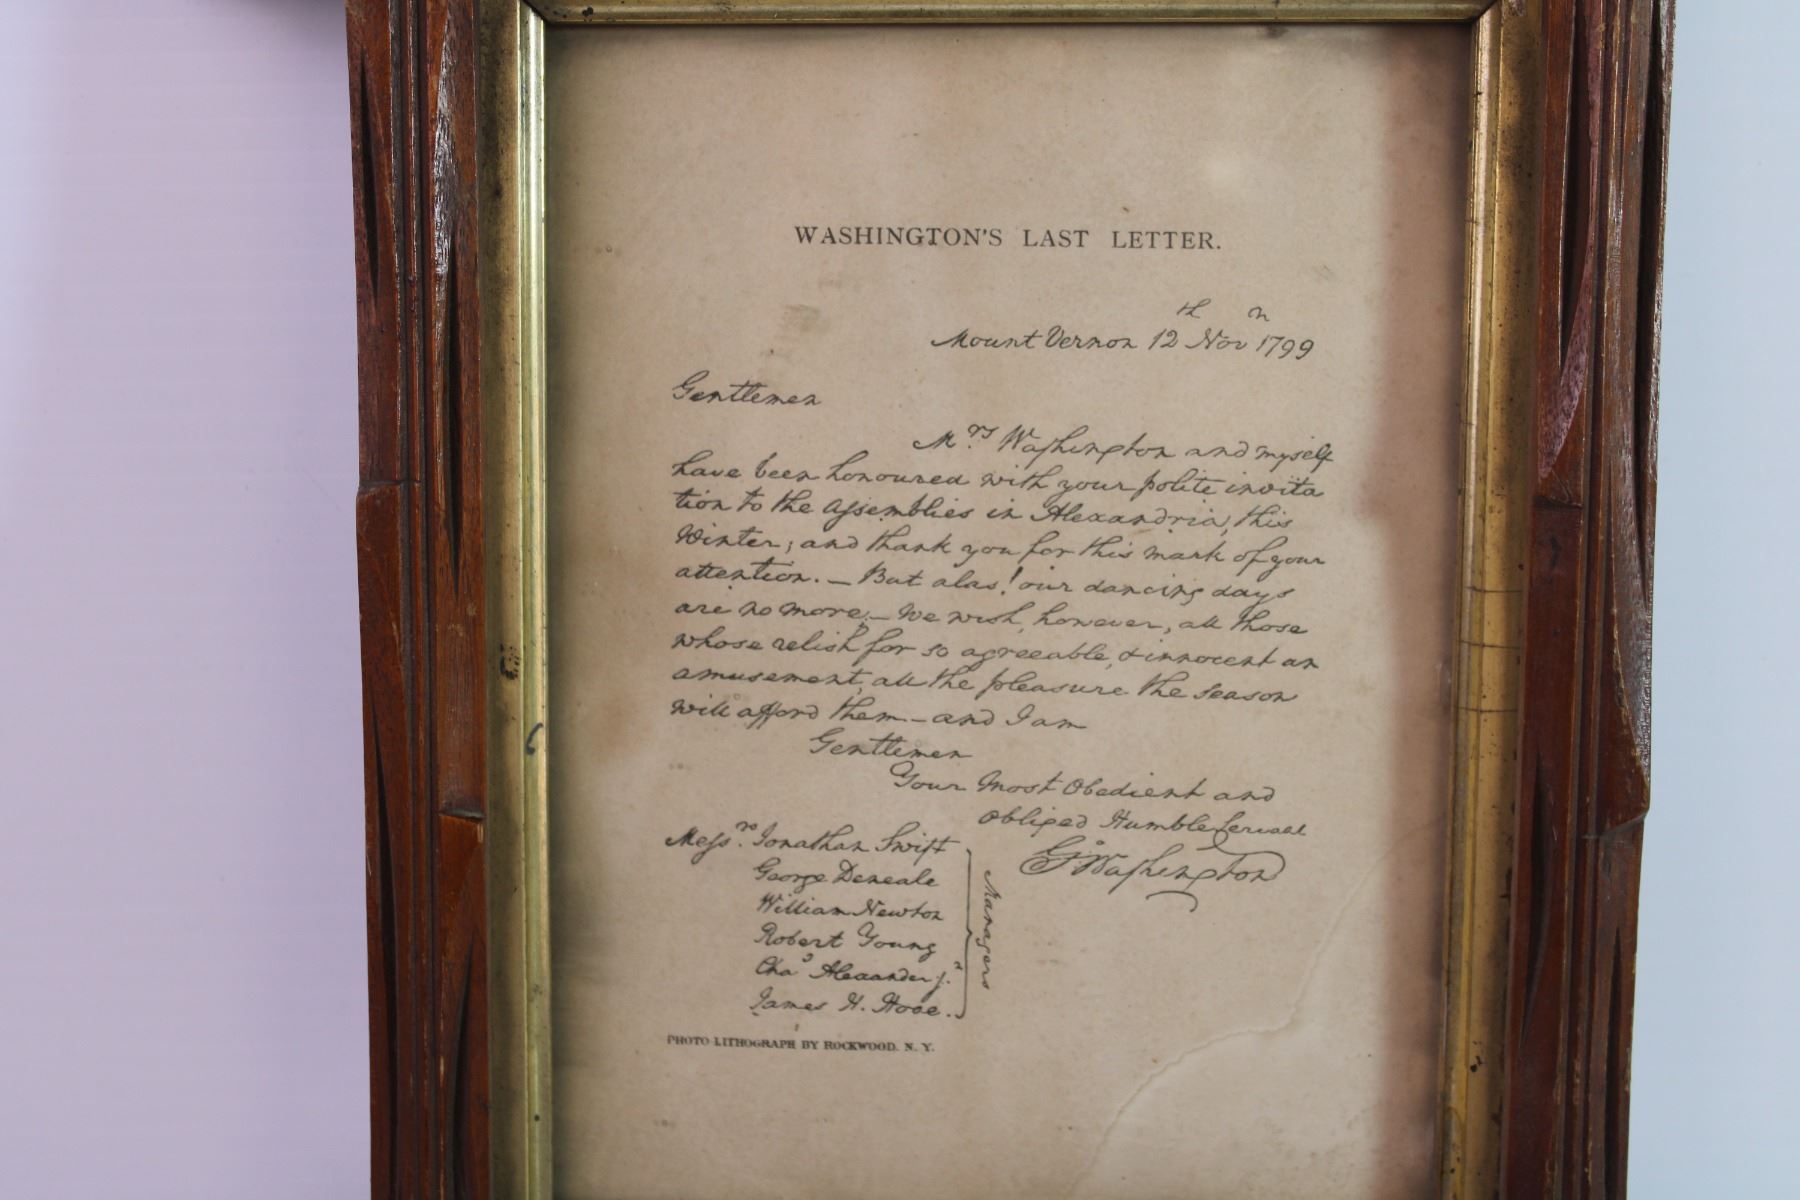 WASHINGTON'S LAST LETTER.
Mount Vernon 12th Novr 1799
Gentlemen
Mrs. Washington and myself
have been honoured with your polite invita
tion to the assemblies in Alexandria, this
Winter; and thank you for this mark of your
attention. — But alas! our dancing days
are no more; — we wish, however, all those
whose relish for so agreeable, & innocent an
amusement, all the pleasure the Season
will afford them — and I am
Gentlemen
Your Most Obedient and
Obliged Humble Servant
Go Washington
Messrs. Jonathan Swift
George Deneale
William Newton
Robert Young
Chas Alexander jr.
James H. Hooe.
Managers
PHOTO-LITHOGRAPH BY ROCKWOOD. N. Y.